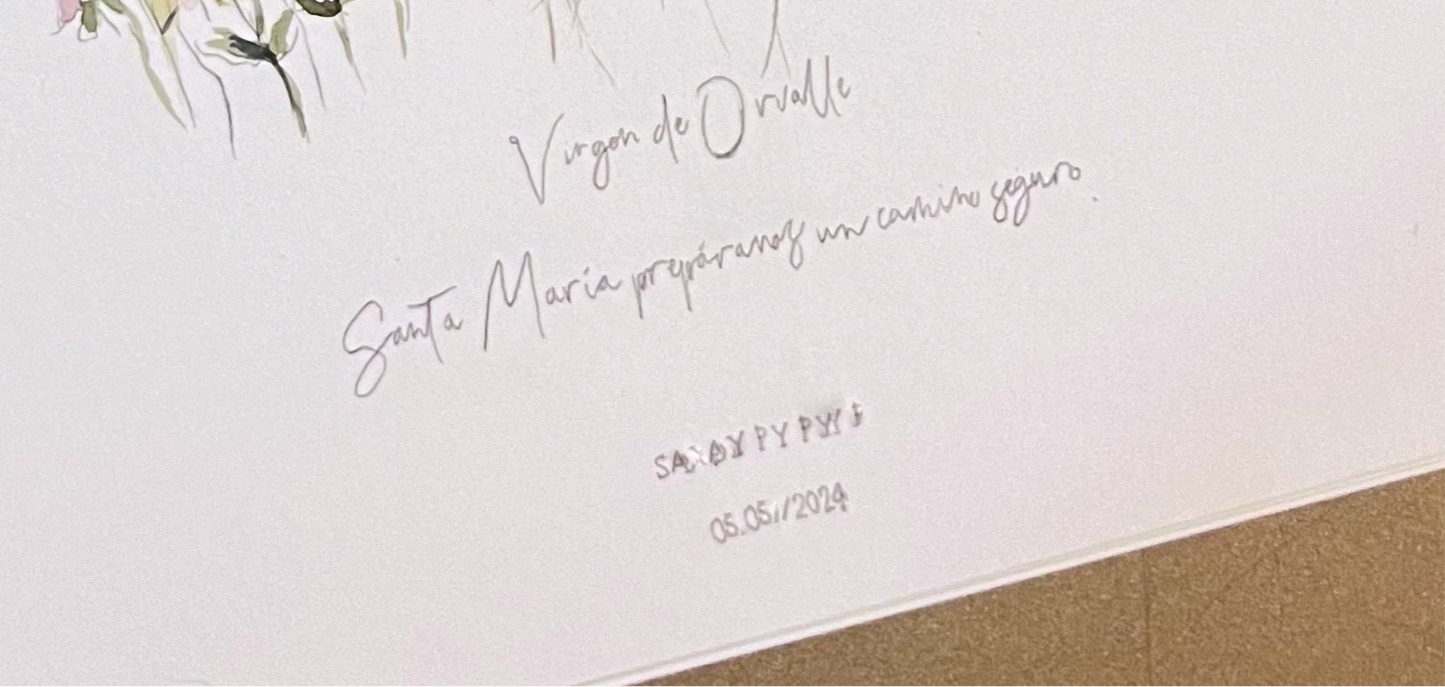 Virgen de Orvalle
Santa María prepáranos un camino seguro.
05.05//2024